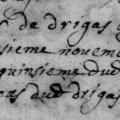 de drigas
sieme novem
quinsieme dud
as dud drigas